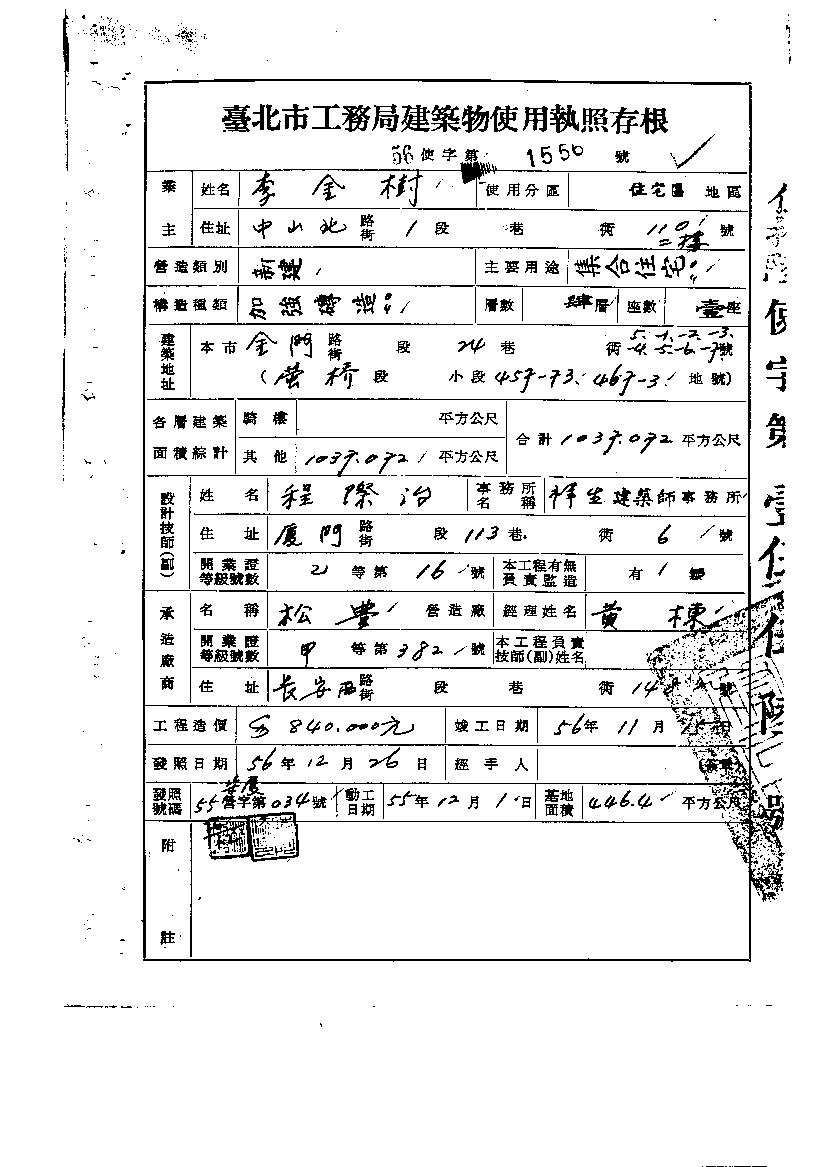 臺北市工務局建築物使用執照存根
56 使字第 1556 號
業主 姓名 李金樹 使用分區 住宅區 地區
住址 中山北 路街 1 段 巷 衖 110 號
二樓
營造類別 新建 主要用途 集合住宅
構造種類 加強磚造 層數 肆層 座數 壹座
建築地址 本市 金門 路街 段 24 巷 衖 5.-1.-2.-3.-4.-5.-6.-7 號
(螢桥段 小段 457-73. 467-3 地號)
各層建築面積綜計 騎樓 平方公尺 合計 1037.072 平方公尺
其他 1037.072 平方公尺
設計技師(副) 姓名 程 治 事務所名稱 祥生建築師事務所
住址 廈門 路街 段 113 巷 衖 6 號
開業證等級號數 等第 16 號 本工程有無負責監造 有
承造廠商 名稱 松豊 營造廠 經理姓名 黄棟
開業證等級號數 甲 等第 382 號 本工程負責技師(副)姓名
住址 長安西 路街 段 巷 衖 148 號
工程造價 840.000元 竣工日期 56年 11月 15日
發照日期 56年 12月 26日 經手人
發照號碼 55 營字第 034 號 動工日期 55年 12月 1日 基地面積 446.4 平方公尺
附註
使字第壹仟